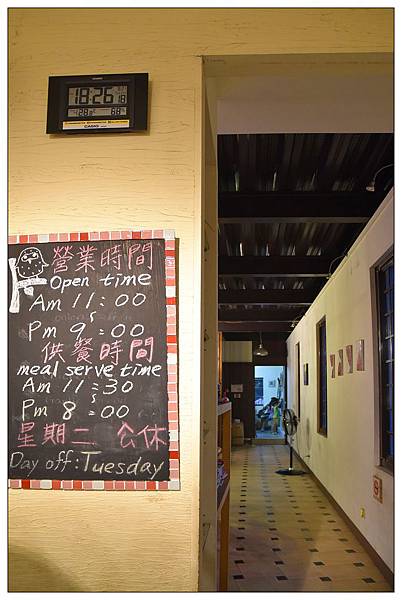 18:26
CASIO
營業時間
Open time
Am 11:00
~
Pm 9:00
供餐時間
meal serve time
Am 11:30
~
Pm 8:00
星期二 公休
Day off: Tuesday